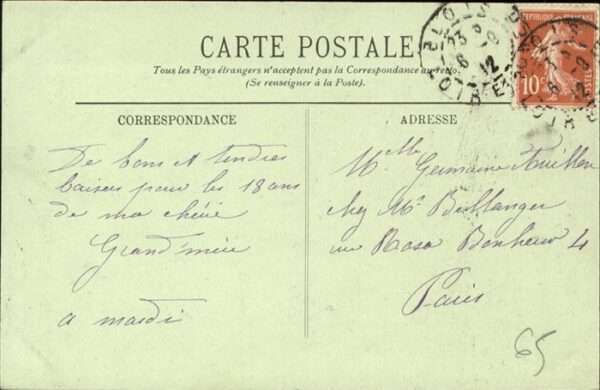 CARTE POSTALE
Tous les Pays étrangers n'acceptent pas la Correspondance au recto.
(Se renseigner à la Poste).
CORRESPONDANCE
De bons et tendres
baisers pour les 18 ans
de ma chérie
Grand'mère
a mardi
ADRESSE
Mlle Germaine
chez Mr Bellanger
rue Rosa Bonheur 4
Paris
65
10c
BLOIS
LOIR-ET-CHER